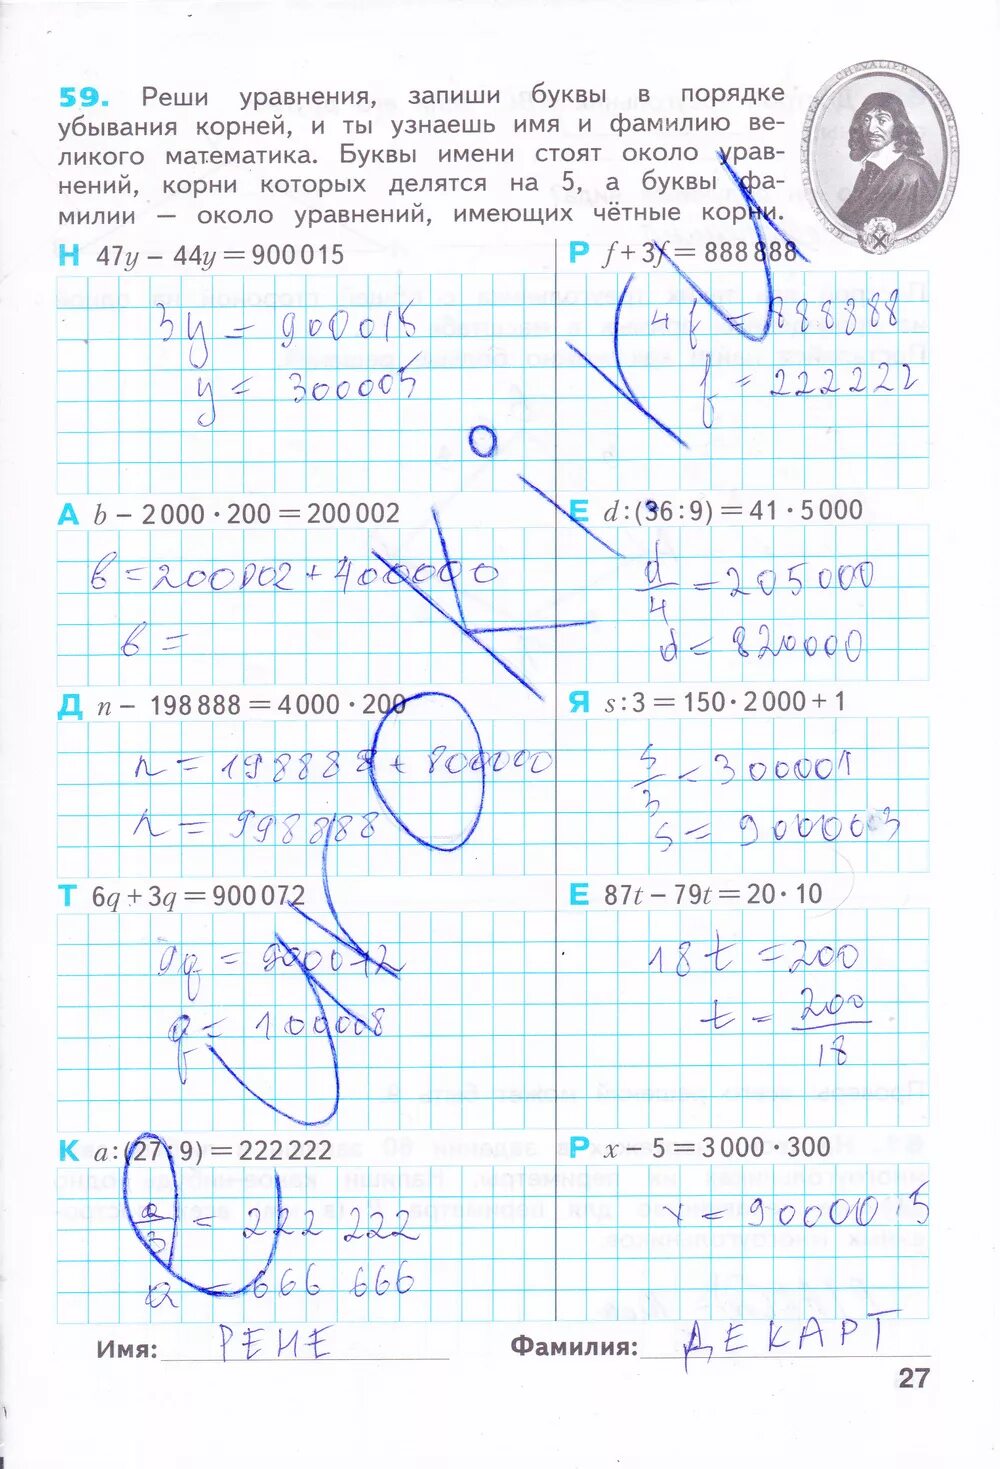 59. Реши уравнения, запиши буквы в порядке
убывания корней, и ты узнаешь имя и фамилию ве-
ликого математика. Буквы имени стоят около урав-
нений, корни которых делятся на 5, а буквы фа-
милии — около уравнений, имеющих чётные корни.
Н 47y − 44y = 900 015
3y = 900015
y = 300005
Р f + 3f = 888 888
4f = 888888
f = 222222
А b − 2 000 · 200 = 200 002
в = 200002 + 400000
в =
Е d : (36 : 9) = 41 · 5 000
d/4 = 205000
d = 820000
Д n − 198 888 = 4 000 · 200
n = 198888 + 800000
n = 998888
Я s : 3 = 150 · 2 000 + 1
s/3 = 300001
s = 900003
Т 6q + 3q = 900 072
9q = 900072
q = 100008
Е 87t − 79t = 20 · 10
18t = 200
t = 200/18
К a : (27 : 9) = 222 222
a/3 = 222 222
a = 666 666
Р x − 5 = 3 000 · 300
x = 900005
Имя: РЕНЕ
Фамилия: ДЕКАРТ
27